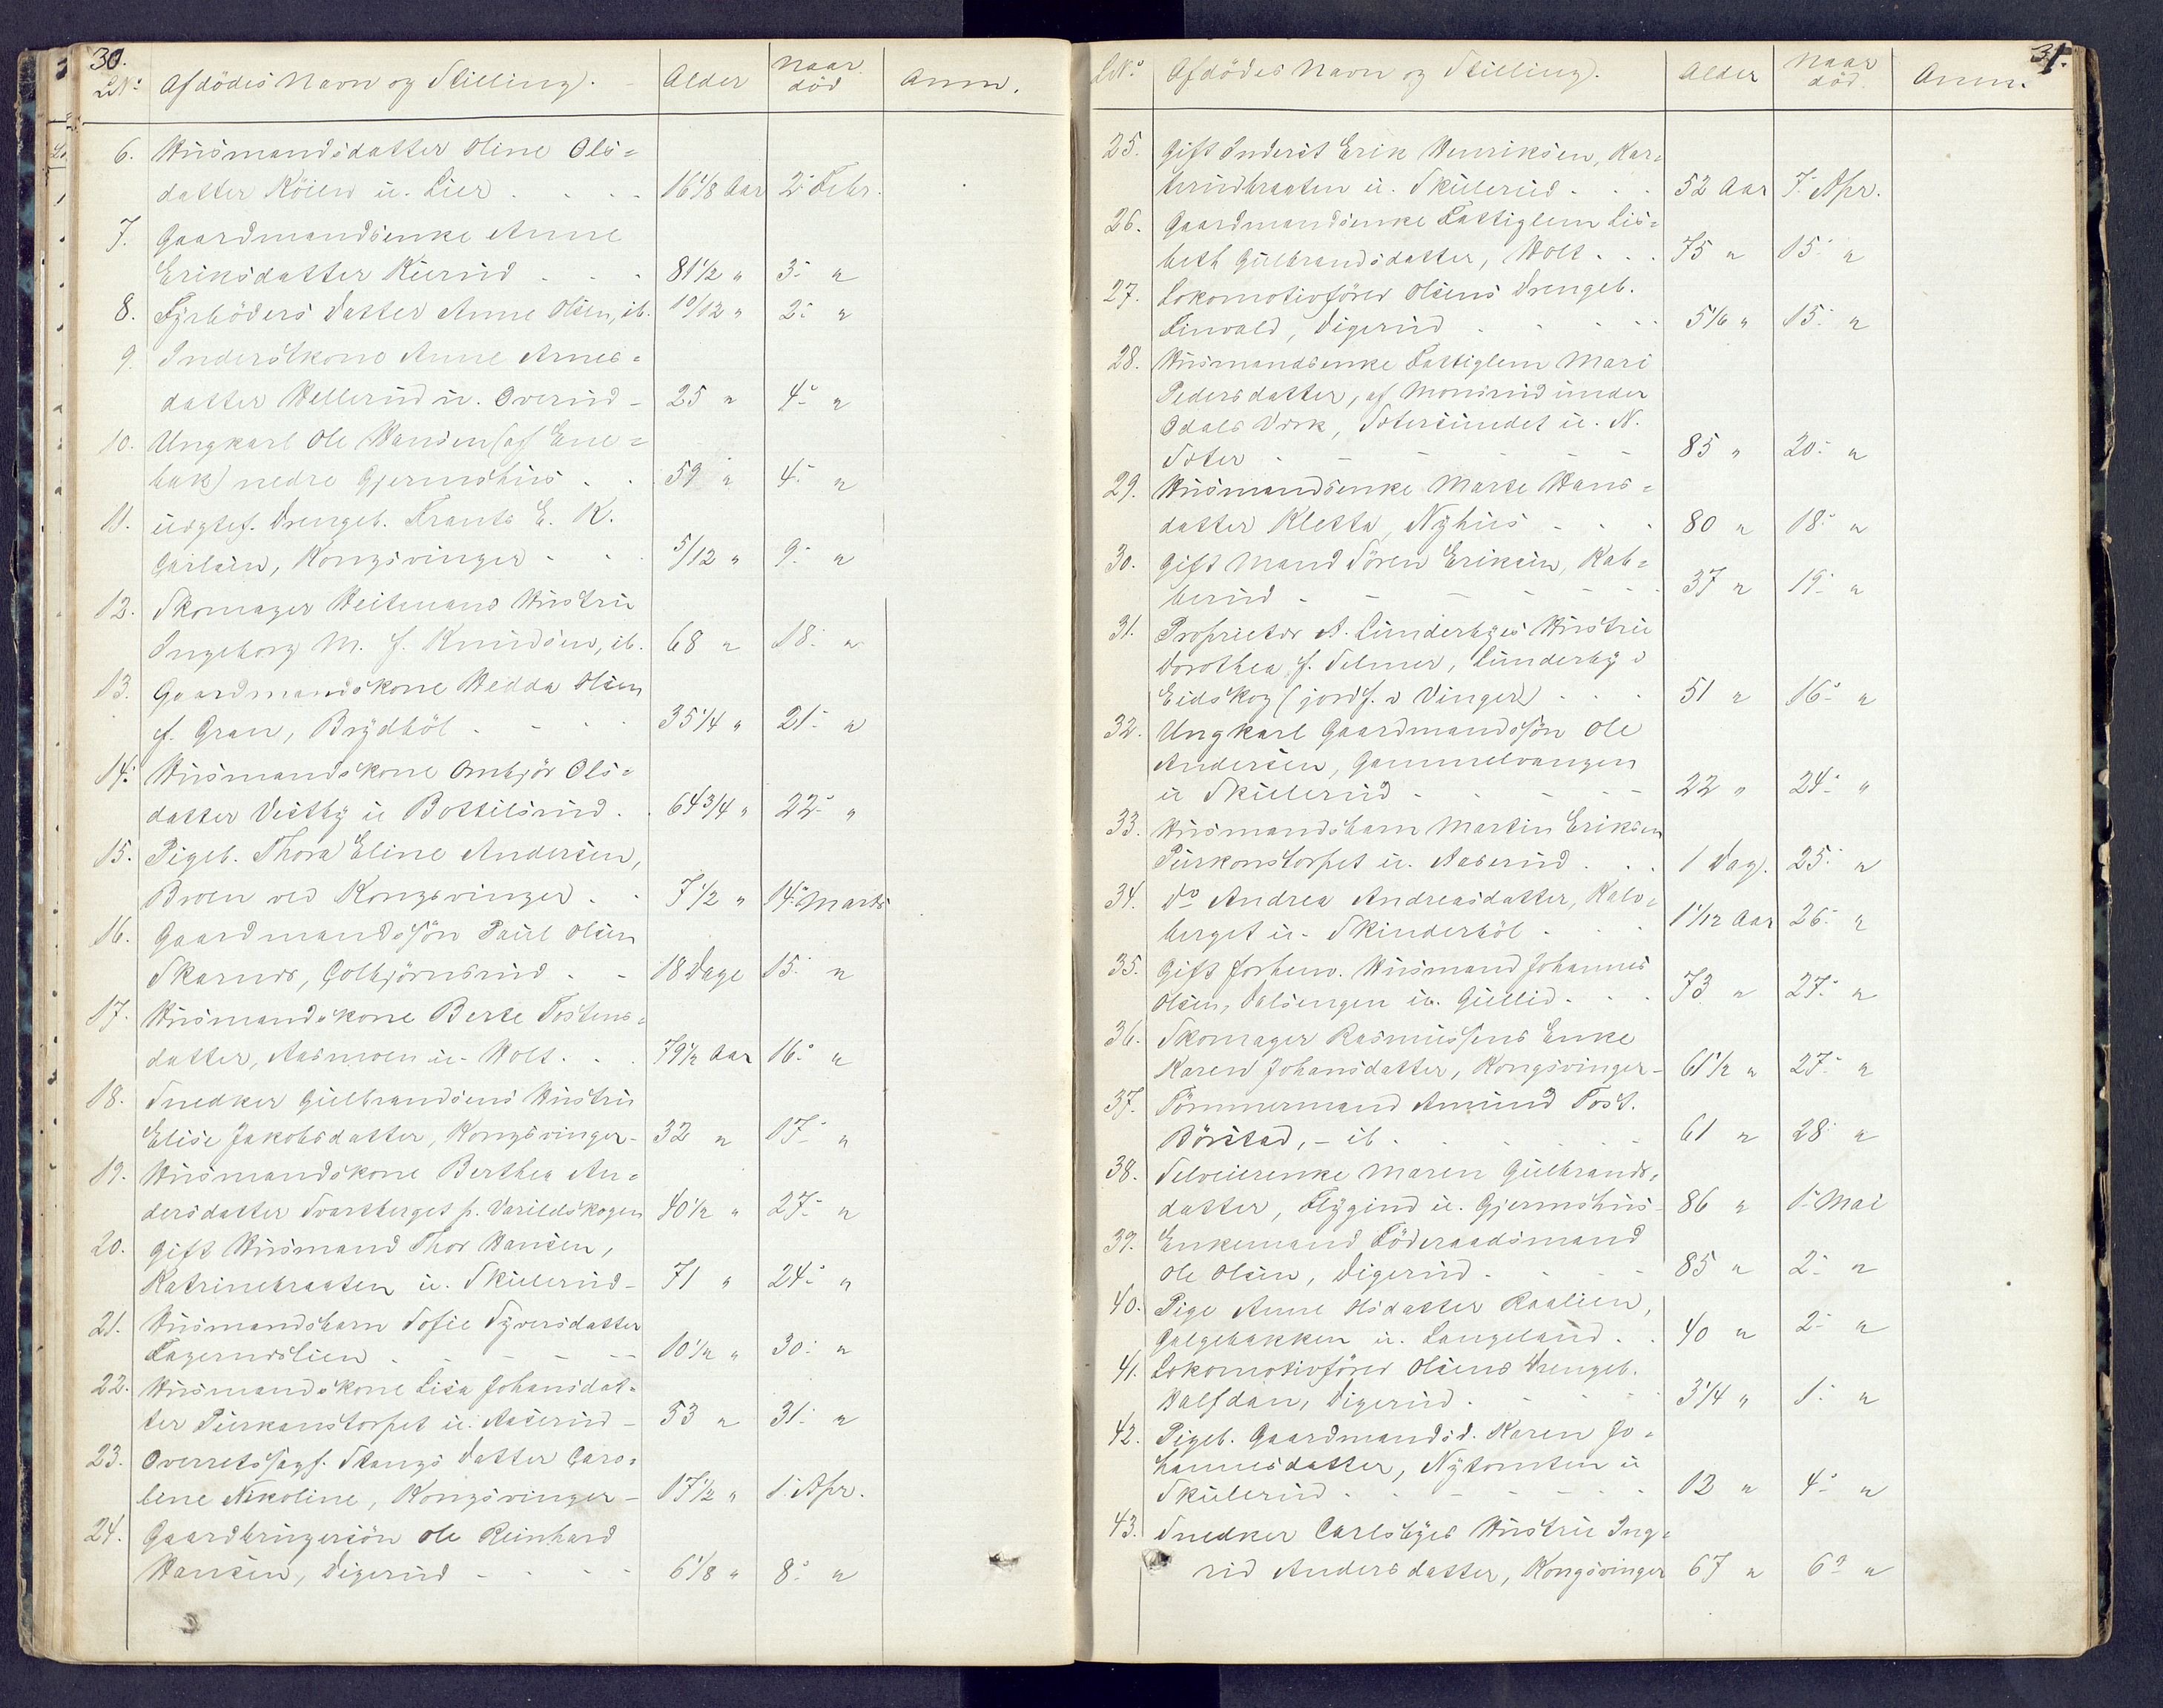 30.
LNo Afdödes Navn og Stilling. Alder Naar död Anm.
6. Husmandsdatter Oline Ols=
datter Röien u. Lier 16 1/8 Aar 2. Febr.
7. Gaardmandsenke Anne
Eriksdatter Kierud 81 1/2 " 3. "
8. Fyrböders Datter Anne Olsen, ib. 10/12 " 2. "
9. Inderstkone Anne Arnes=
datter Hellerud u. Overud 25 " 4. "
10. Ungkarl Ole Hansen (af Ene=
bak) nedre Gjermshus 59 " 4. "
11. uægtef. Drengeb. Frants E. K.
Carlsen, Kongsvinger 5/12 " 9. "
12. Skomager Heitmans Hustru
Ingeborg M. f. Knudsen, ib. 68 " 18. "
13. Gaardmandskone Hedda Olsen
f. Gran, Brydböl 35 1/4 " 21. "
14. Husmandskone Ombjör Ols=
datter Vestby u Bottilsrud 64 3/4 " 22. "
15. Pigeb. Thora Eline Andersen,
Broen ved Kongsvinger 7 1/2 " 14. Marts
16. Gaardmandssön Paul Olsen
Skarnes, Golbjörnsrud 18 Dage 15. "
17. Husmandskone Berte Tostens=
datter, Aasmoen u. Holt 79 1/2 Aar 16. "
18. Snedker Gulbrandsens Hustru
Elise Jakobsdatter, Kongsvinger 32 " 17. "
19. Husmandskone Berthea An=
dersdatter Svartberget p. Varildskogen 40 1/2 " 27. "
20. Gift Husmand Thor Hansen,
Katrinebraaten u. Skulerud 71 " 24. "
21. Husmandsbarn Sofie Syversdatter
Fagerneslien 10 1/2 " 30. "
22. Husmandskone Lisa Johansdat=
ter Purkanstorpet u. Aaserud 53 " 31. "
23. Overretssagf. Stangs Datter Caro=
line Nikoline, Kongsvinger 17 1/2 " 1. Apr.
24. Gaardbrugersön Ole Reinhard
Hansen, Digerud 6 1/8 " 8. "
31.
LNo Afdödes Navn og Stilling. Alder Naar död Anm.
25. Gift Inderst Erik Henriksen, Kar=
terudbraaten u. Skulerud 52 Aar 7. Apr.
26. Gaardmandsenke Fattiglem Lis=
beth Gulbrandsdatter, Holt 75 " 15. "
27. Lokomotivförer Olsens Drengeb.
Einvald, Digerud 5 1/6 " 15. "
28. Husmandsenke Fattiglem Mari
Pedersdatter, af Monsrud under
Odals Værk, Sotersundet u. N.
Soter 85 " 20. "
29. Husmandsenke Marte Hans=
datter Kletta, Nyhus 80 " 18. "
30. Gift Mand Sören Eriksen, Rab=
berud 37 " 19. "
31. Proprietær A. Lunderbyes Hustru
Dorothea f. Selmer, Lunderby i
Eidskog (jordf. i Vinger) 51 " 16. "
32. Ungkarl Gaardmandssön Ole
Andersen, Gammelvangen
u Skulerud 22 " 24. "
33. Husmandsbarn Martin Eriksen
Purkonstorpet u. Aaserud 1 Dag. 25. "
34. Do Andrea Andreasdatter, Kalv=
berget u. Skinderböl 1 1/12 Aar 26. "
35. Gift forhenv. Husmand Johannes
Olsen, Dalsengen u. Gullid 73 " 27. "
36. Skomager Rasmussens Enke
Karen Johansdatter, Kongsvinger 61 1/2 " 27. "
37. Tömmermand Amund Tost.
Börstad, - ib. 61 " 28. "
38. Selveierenke Maren Gulbrands=
datter, Flygind u. Gjermshus 86 " 1. Mai
39. Enkemand Föderaadsmand
Ole Olsen, Digerud 85 " 2. "
40. Pige Anne Olsdatter Raalien,
Galgebakken u. Langeland 40 " 2. "
41. Lokomotivförer Olsens Drengeb.
Halfdan, Digerud 3 1/4 " 1. "
42. Pigeb. Gaardmandsd. Karen Jo=
hannesdatter, Nytomten u
Skulerud 12 " 4. "
43. Snedker Carlsbyes Hustru Ing=
rid Andersdatter, Kongsvinger 67 " 6. "